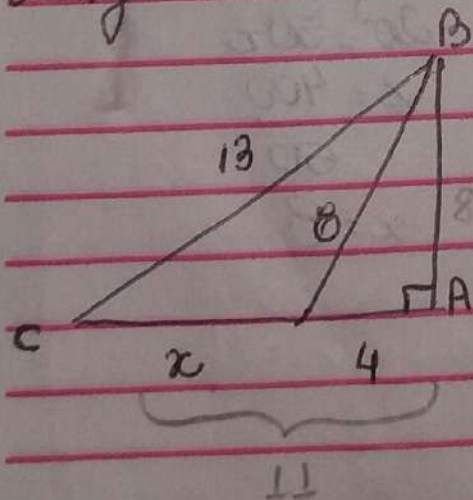 B
13
8
A
C
x
4
11